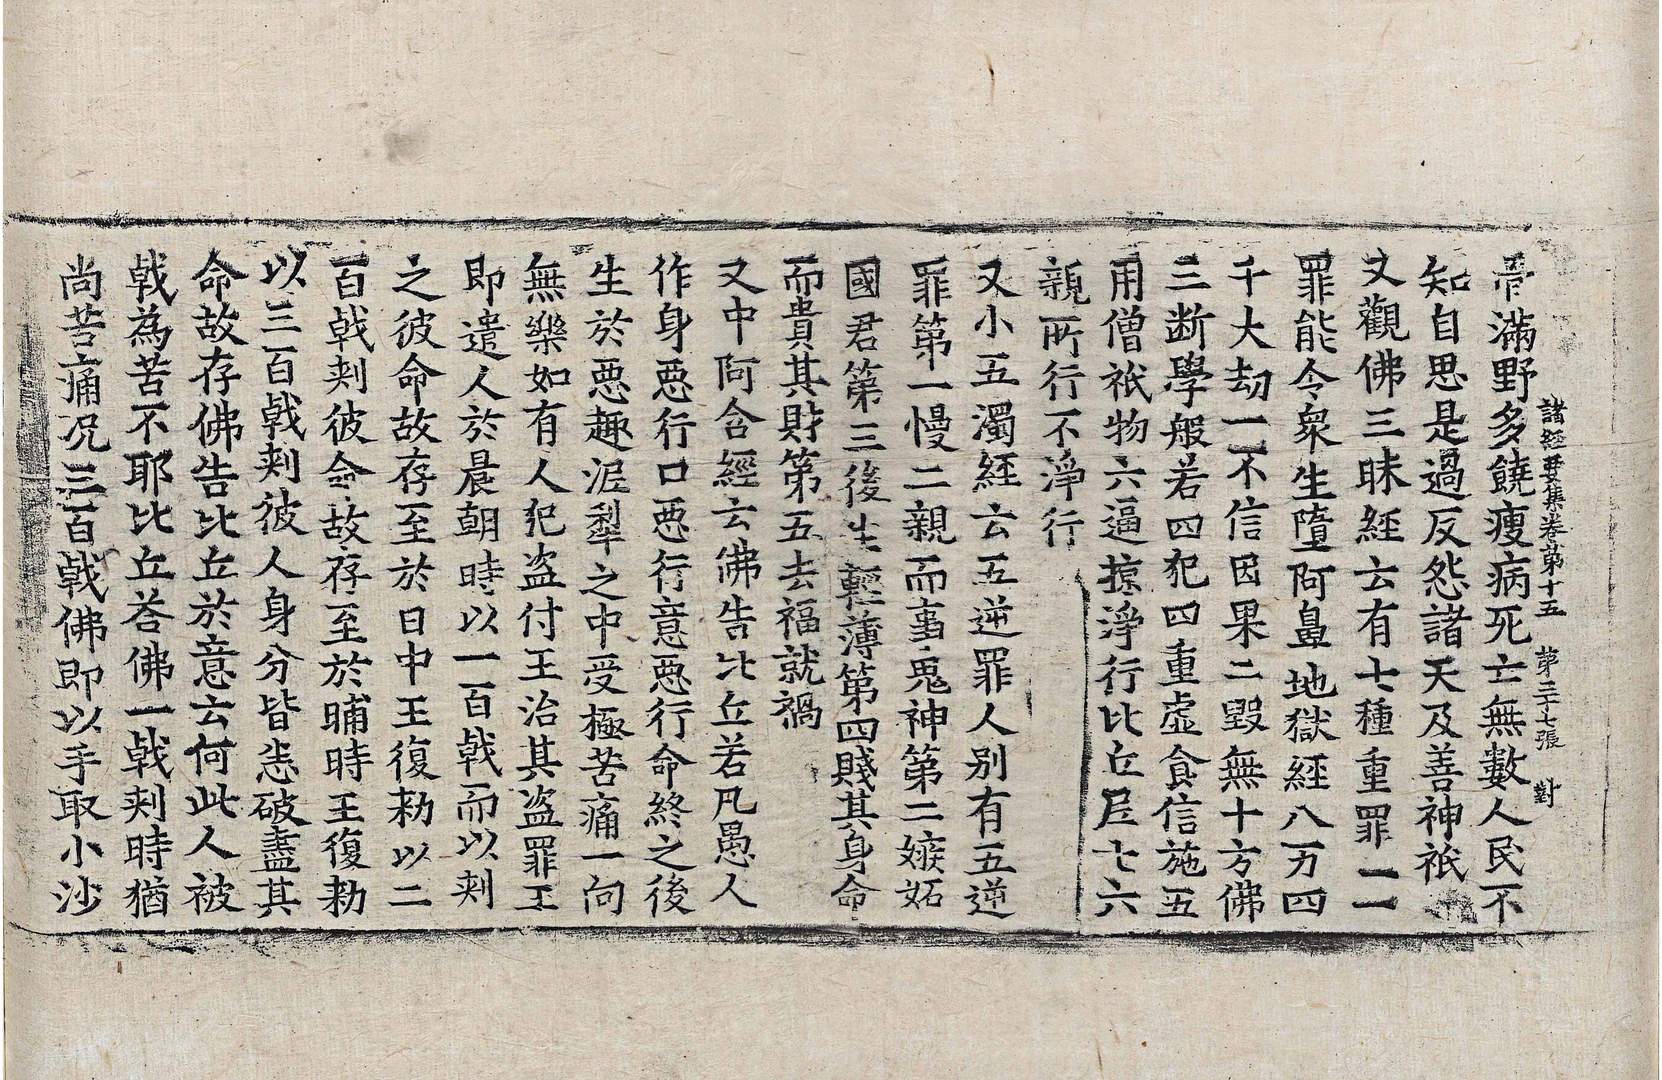 諸經要集卷第十五 第三十七張 對
帝滿野多饒瘦病死亡無數人民不
知自思是過反怨諸天及善神祇
又觀佛三昧經云有七種重罪一一
罪能令衆生墮阿鼻地獄經八万四
千大劫一不信因果二毀無十方佛
三斷學般若四犯四重虛食信施五
用僧祇物六逼掠淨行比丘尼七六
親所行不淨行
又小五濁經云五逆罪人别有五逆
罪第一慢二親而事鬼神第二嫉妬
國君第三後生輕薄第四賤其身命
而貴其財第五去福就禍
又中阿含經云佛告比丘若凡愚人
作身惡行口惡行意惡行命終之後
生於惡趣泥犁之中受極苦痛一向
無樂如有人犯盗付王治其盗罪王
即遣人於晨朝時以一百戟而以刾
之彼命故存至於日中王復勑以二
百戟刾彼命故存至於晡時王復勑
以三百戟刾彼人身分皆悉破盡其
命故存佛告比丘於意云何此人被
戟為苦不耶比丘荅佛一戟刾時猶
尚苦痛况三百戟佛即以手取小沙